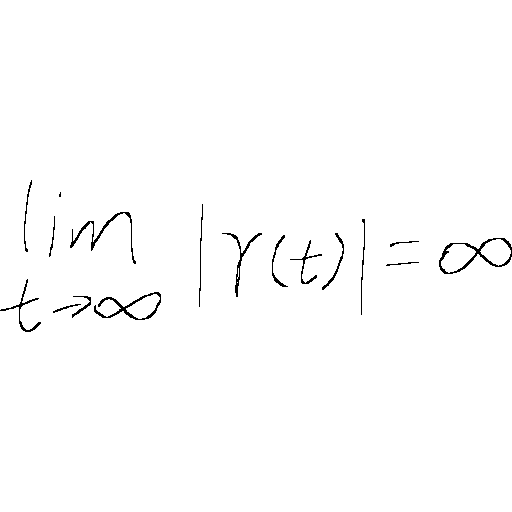 \lim_{t \to \infty} |\gamma(t)| = \infty